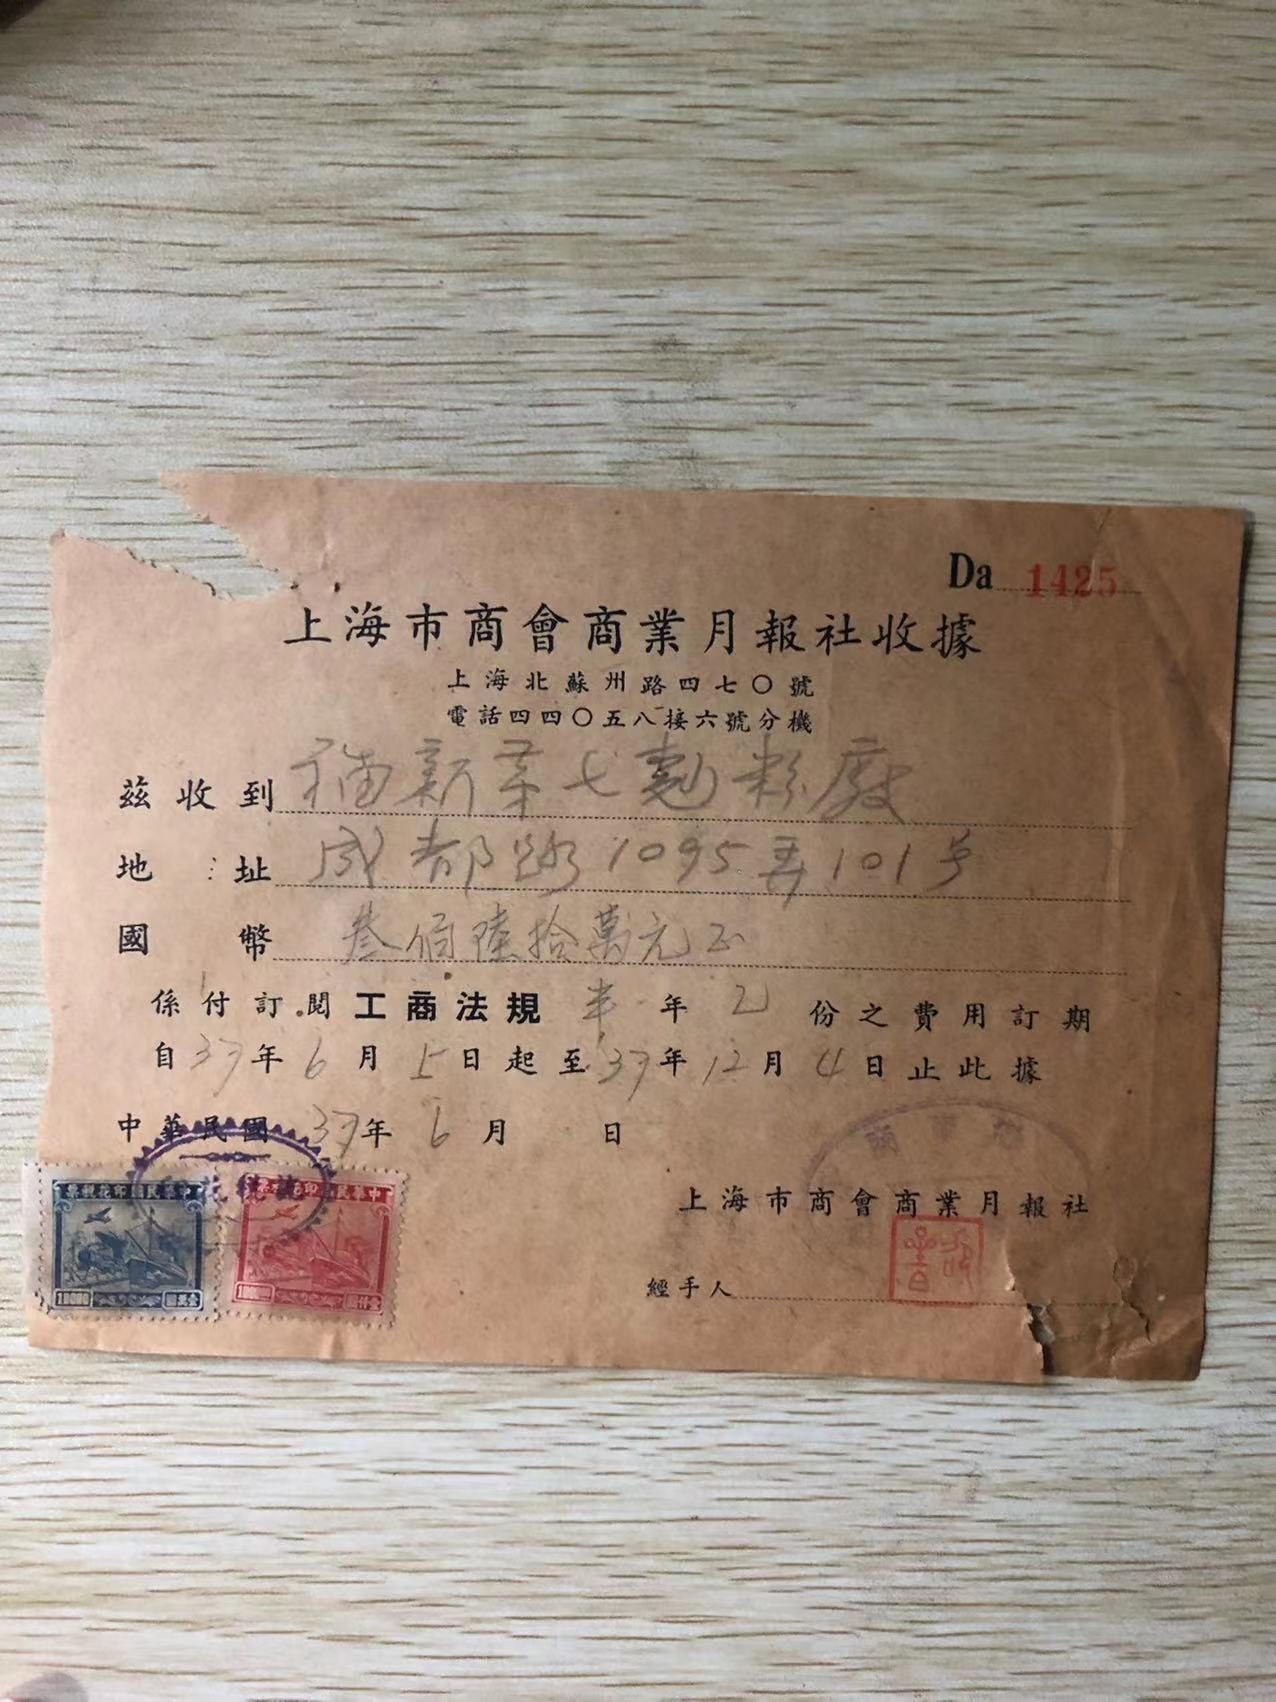 Da 1425
上海市商會商業月報社收據
上海北蘇州路四七〇號
電話四四〇五八接六號分機
茲收到 福新第七麵粉廠
地址 成都路1095弄101号
國幣 叁佰陸拾萬元正
係付訂閱工商法規 半年 2 份之費用訂期
自37年6月5日起至37年12月4日止此據
中華民國37年6月 日
中華民國印花稅票
10000
中華民國印花稅票
上海市商會商業月報社
經手人